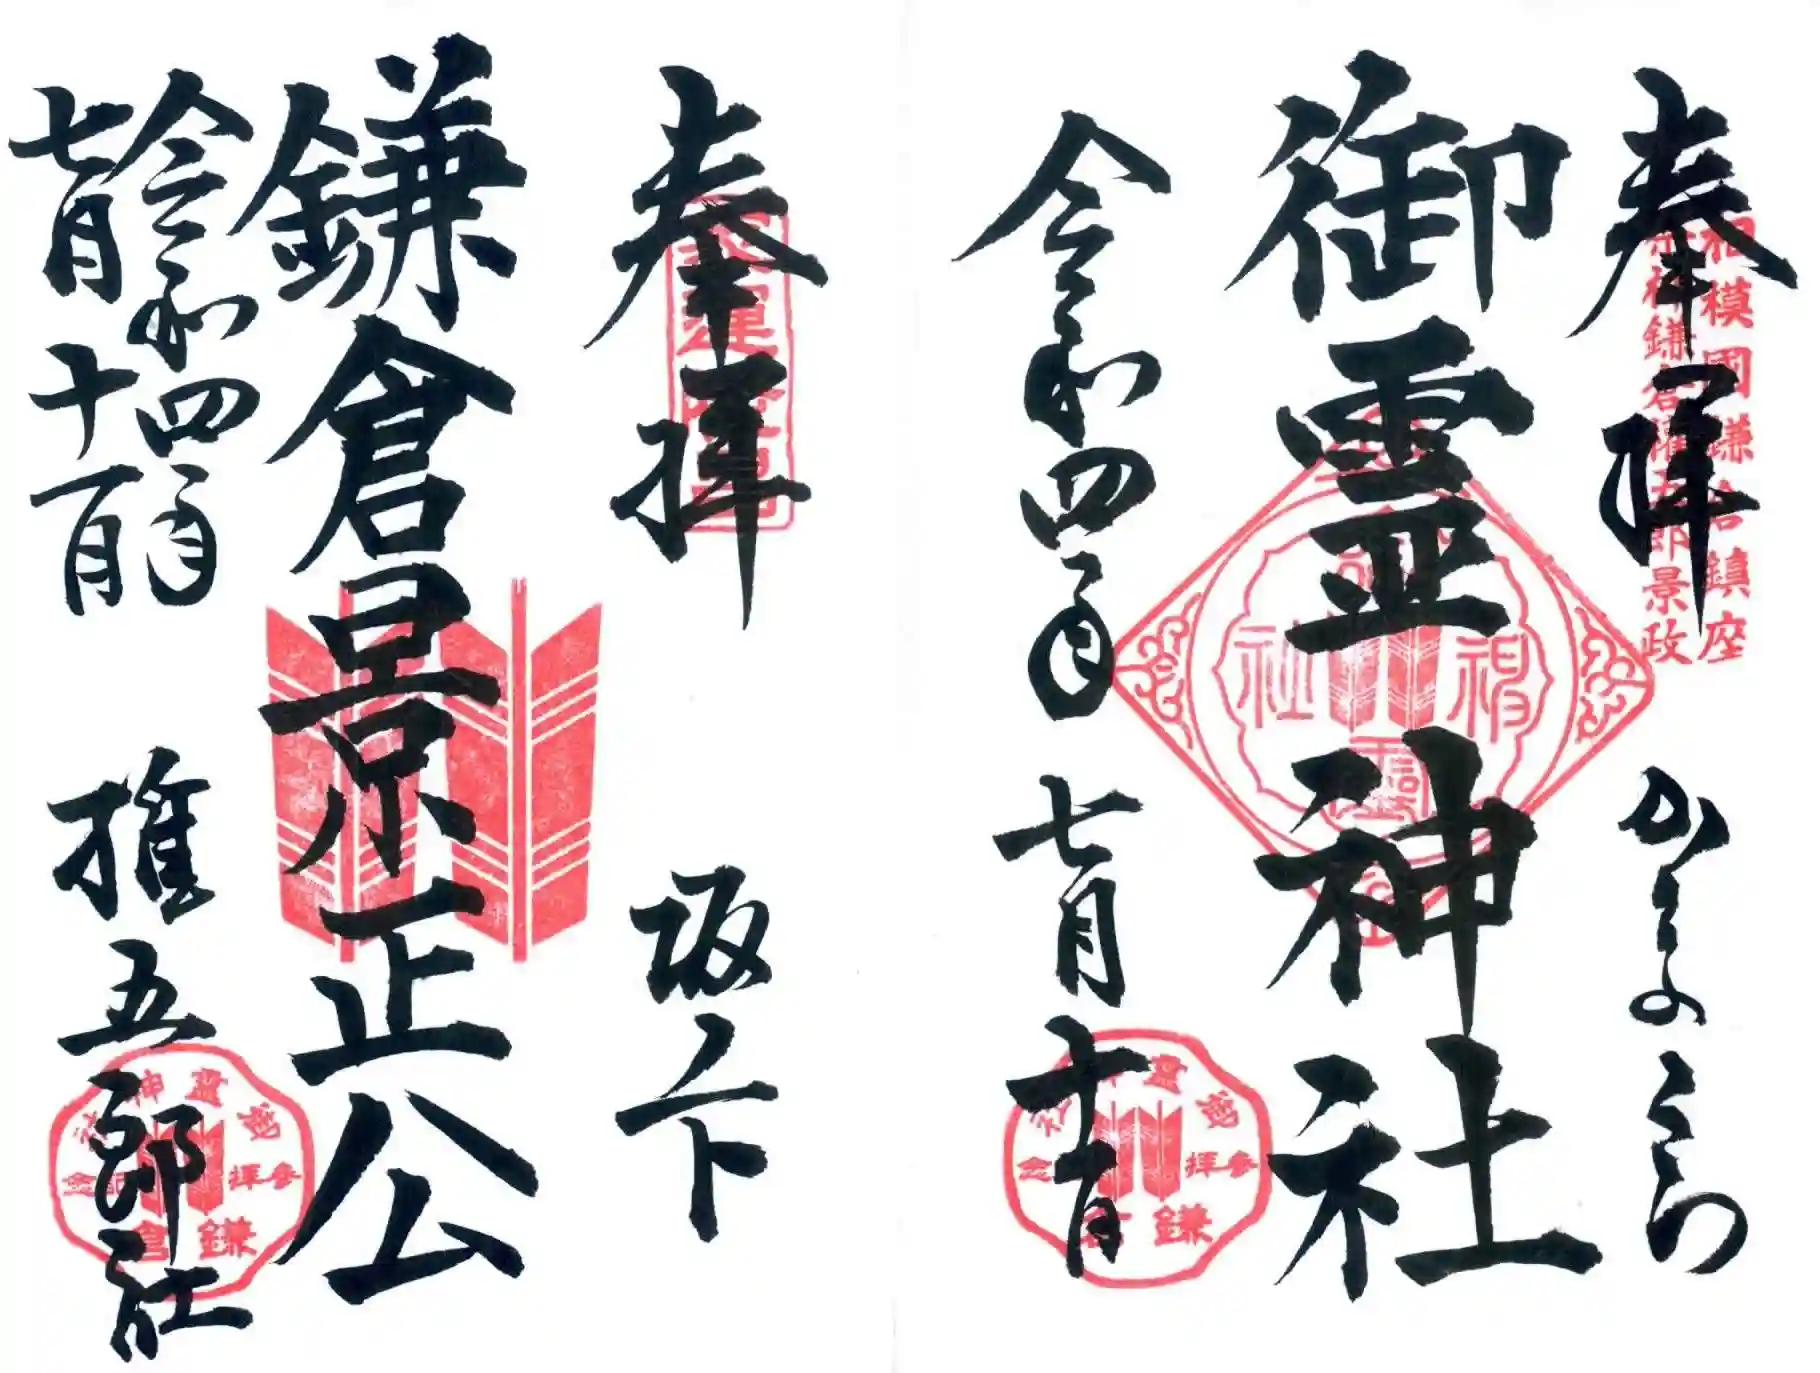 奉拝
相模國鎌倉鎮座
祭神鎌倉権五郎景政
御霊神社
御霊神社
令和四年
七月十一日
御霊神社
参拝記念
鎌倉
奉拝
坂ノ下
鎌倉景正公
令和四年
七月十一日
権五郎社
御霊神社
参拝記念
鎌倉